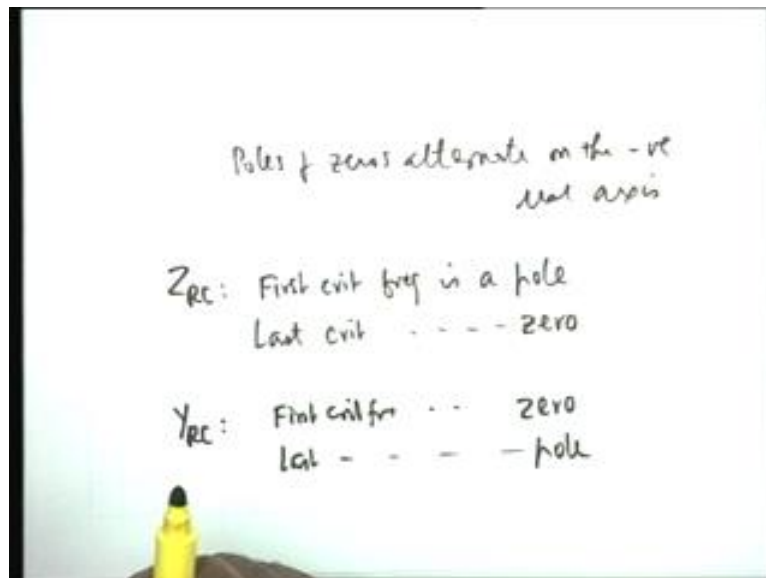 Poles & zeros alternate on the -ve
real axis
Z_RC: First crit freq is a pole
Last crit - - - - zero
Y_RC: First crit fre - - zero
last - - - - pole